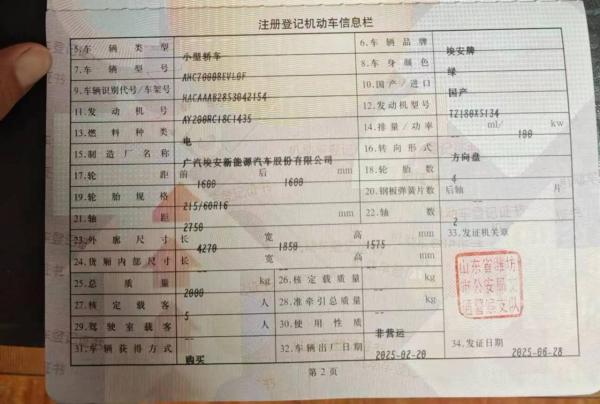 注册登记机动车信息栏
5.车辆类型 小型轿车 6.车辆品牌 埃安牌
7.车辆型号 AHC7000BEVL0F 8.车身颜色 绿
9.车辆识别代号/车架号 HACAAAB2853042154 10.国产/进口 国产
11.发动机号 AY200RC18C1435 12.发动机型号 TZ180XS134
13.燃料种类 电 14.排量/功率 -- ml/ 100 kw
15.制造厂名称 广汽埃安新能源汽车股份有限公司 16.转向形式 方向盘
17.轮距 前 1600 后 1600 mm 18.轮胎数 4
19.轮胎规格 215/60R16 20.钢板弹簧片数 后轴 -- 片
21.轴距 2750 mm 22.轴数 2
23.外廓尺寸 长 4270 宽 1850 高 1575 mm 33.发证机关章
24.货厢内部尺寸 长 -- 宽 -- 高 -- mm
25.总质量 2000 kg 26.核定载质量 -- kg
27.核定载客 5 人 28.准牵引总质量 -- kg
29.驾驶室载客 -- 人 30.使用性质 非营运
31.车辆获得方式 购买 32.车辆出厂日期 2025-02-20 34.发证日期 2025-06-28
山东省潍坊
市公安局交
通警察支队
第2页